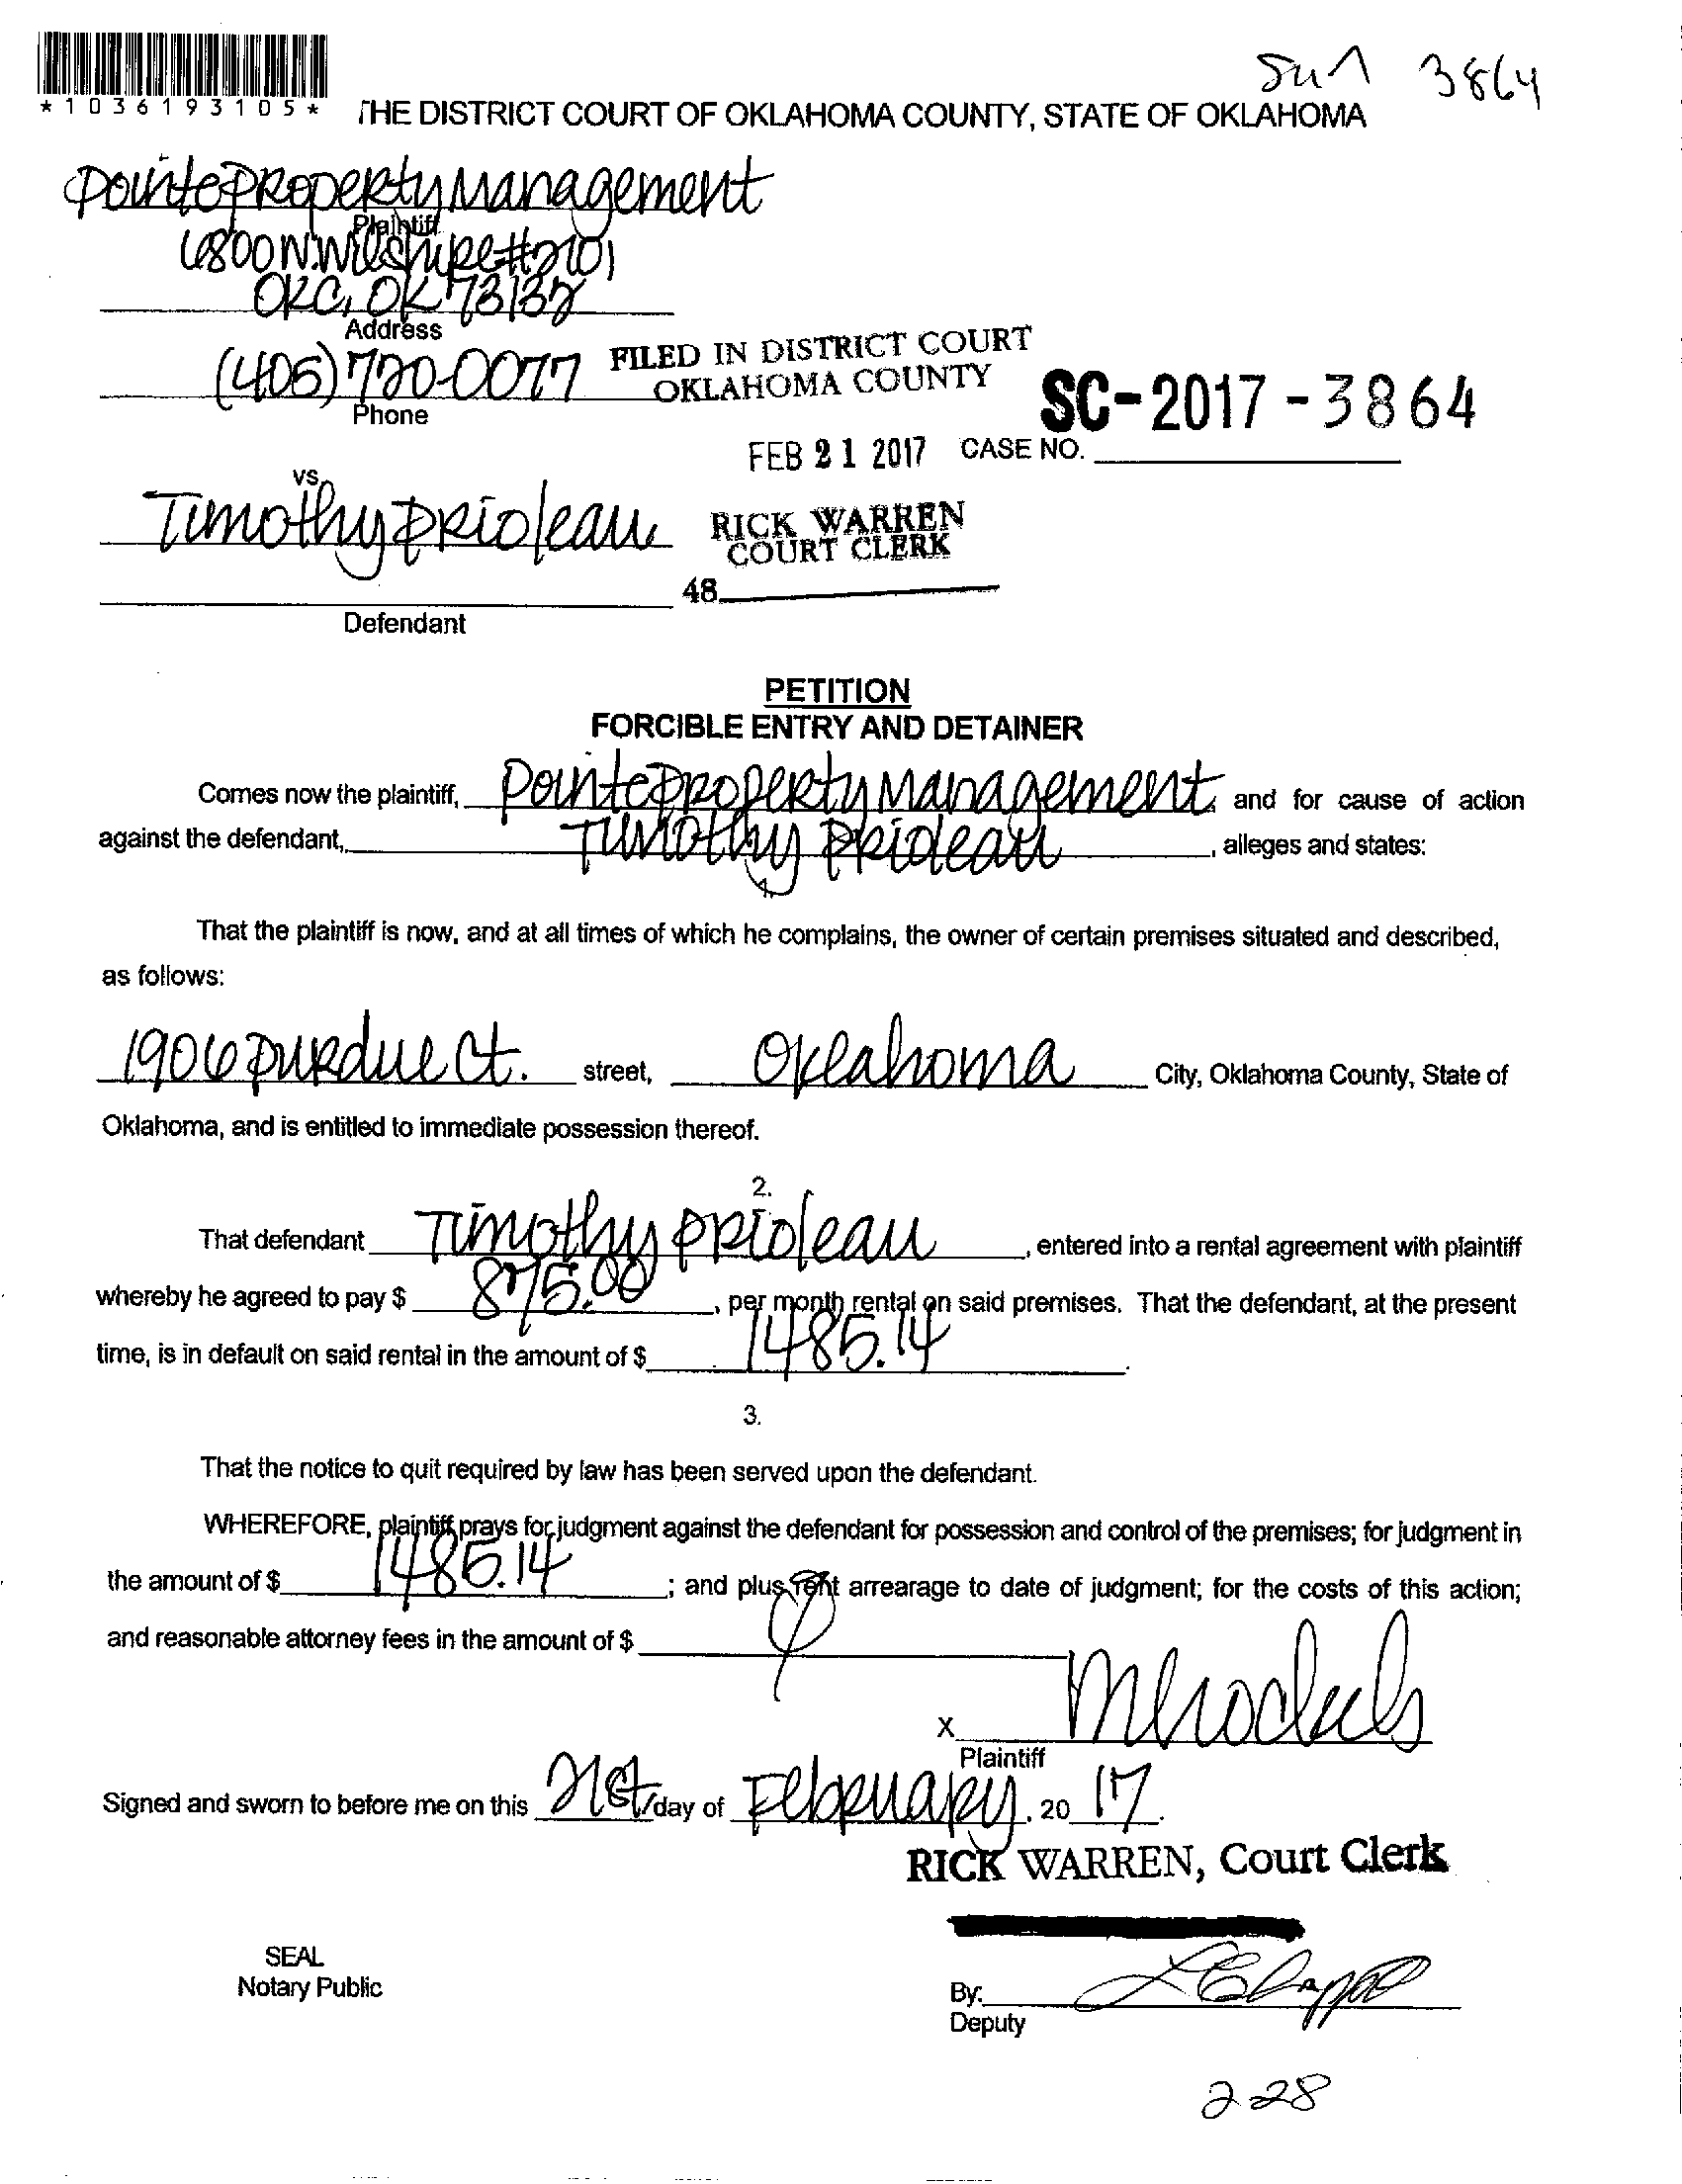 Sun 3864
*1036193105*
THE DISTRICT COURT OF OKLAHOMA COUNTY, STATE OF OKLAHOMA
Pointe Property Management
Plaintiff
6800 N. Wilshire #2101
OKC, OK 73132
Address
(405) 720-0077
Phone
FILED IN DISTRICT COURT
OKLAHOMA COUNTY
SC-2017-3864
FEB 21 2017 CASE NO.
vs.
Timothy Prioleau
RICK WARREN
COURT CLERK
48
Defendant
PETITION
FORCIBLE ENTRY AND DETAINER
Comes now the plaintiff, Pointe Property Management, and for cause of action
against the defendant, Timothy Prioleau, alleges and states:
That the plaintiff is now, and at all times of which he complains, the owner of certain premises situated and described,
as follows:
1906 Purdue Ct. street, Oklahoma City, Oklahoma County, State of
Oklahoma, and is entitled to immediate possession thereof.
2.
That defendant Timothy Prioleau, entered into a rental agreement with plaintiff
whereby he agreed to pay $ 875.00, per month rental on said premises. That the defendant, at the present
time, is in default on said rental in the amount of $ 1485.14.
3.
That the notice to quit required by law has been served upon the defendant.
WHEREFORE, plaintiff prays for judgment against the defendant for possession and control of the premises; for judgment in
the amount of $ 1485.14; and plus rent arrearage to date of judgment; for the costs of this action;
and reasonable attorney fees in the amount of $
X
Plaintiff
Signed and sworn to before me on this 21st day of February, 20 17.
RICK WARREN, Court Clerk
SEAL
Notary Public
By:
Deputy
2-28